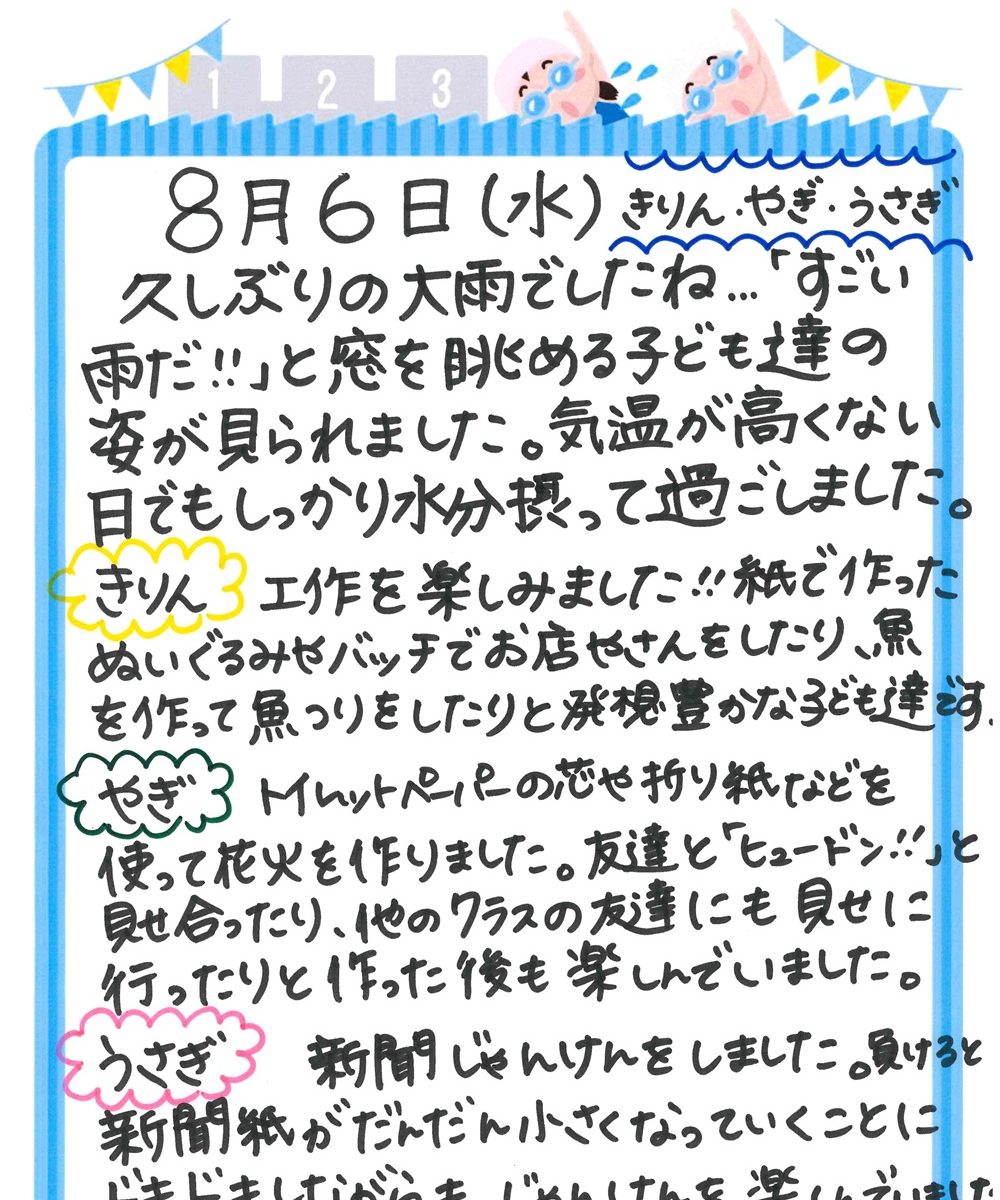 1 2 3
8月6日(水) きりん・やぎ・うさぎ
久しぶりの大雨でしたね…「すごい
雨だ!!」と窓を眺める子ども達の
姿が見られました。気温が高くない
日でもしっかり水分摂って過ごしました。
きりん 工作を楽しみました!!紙で作った
ぬいぐるみやバッチでお店やさんをしたり、魚
を作って魚つりをしたりと発想豊かな子ども達です.
やぎ トイレットペーパーの芯や折り紙などを
使って花火を作りました。友達と「ヒュードン!!」と
見せ合ったり、他のクラスの友達にも見せに
行ったりと作った後も楽しんでいました。
うさぎ 新聞じゃんけんをしました。負けると
新聞紙がだんだん小さくなっていくことに
ドキドキしながらも、じゃんけんを楽しんでいました